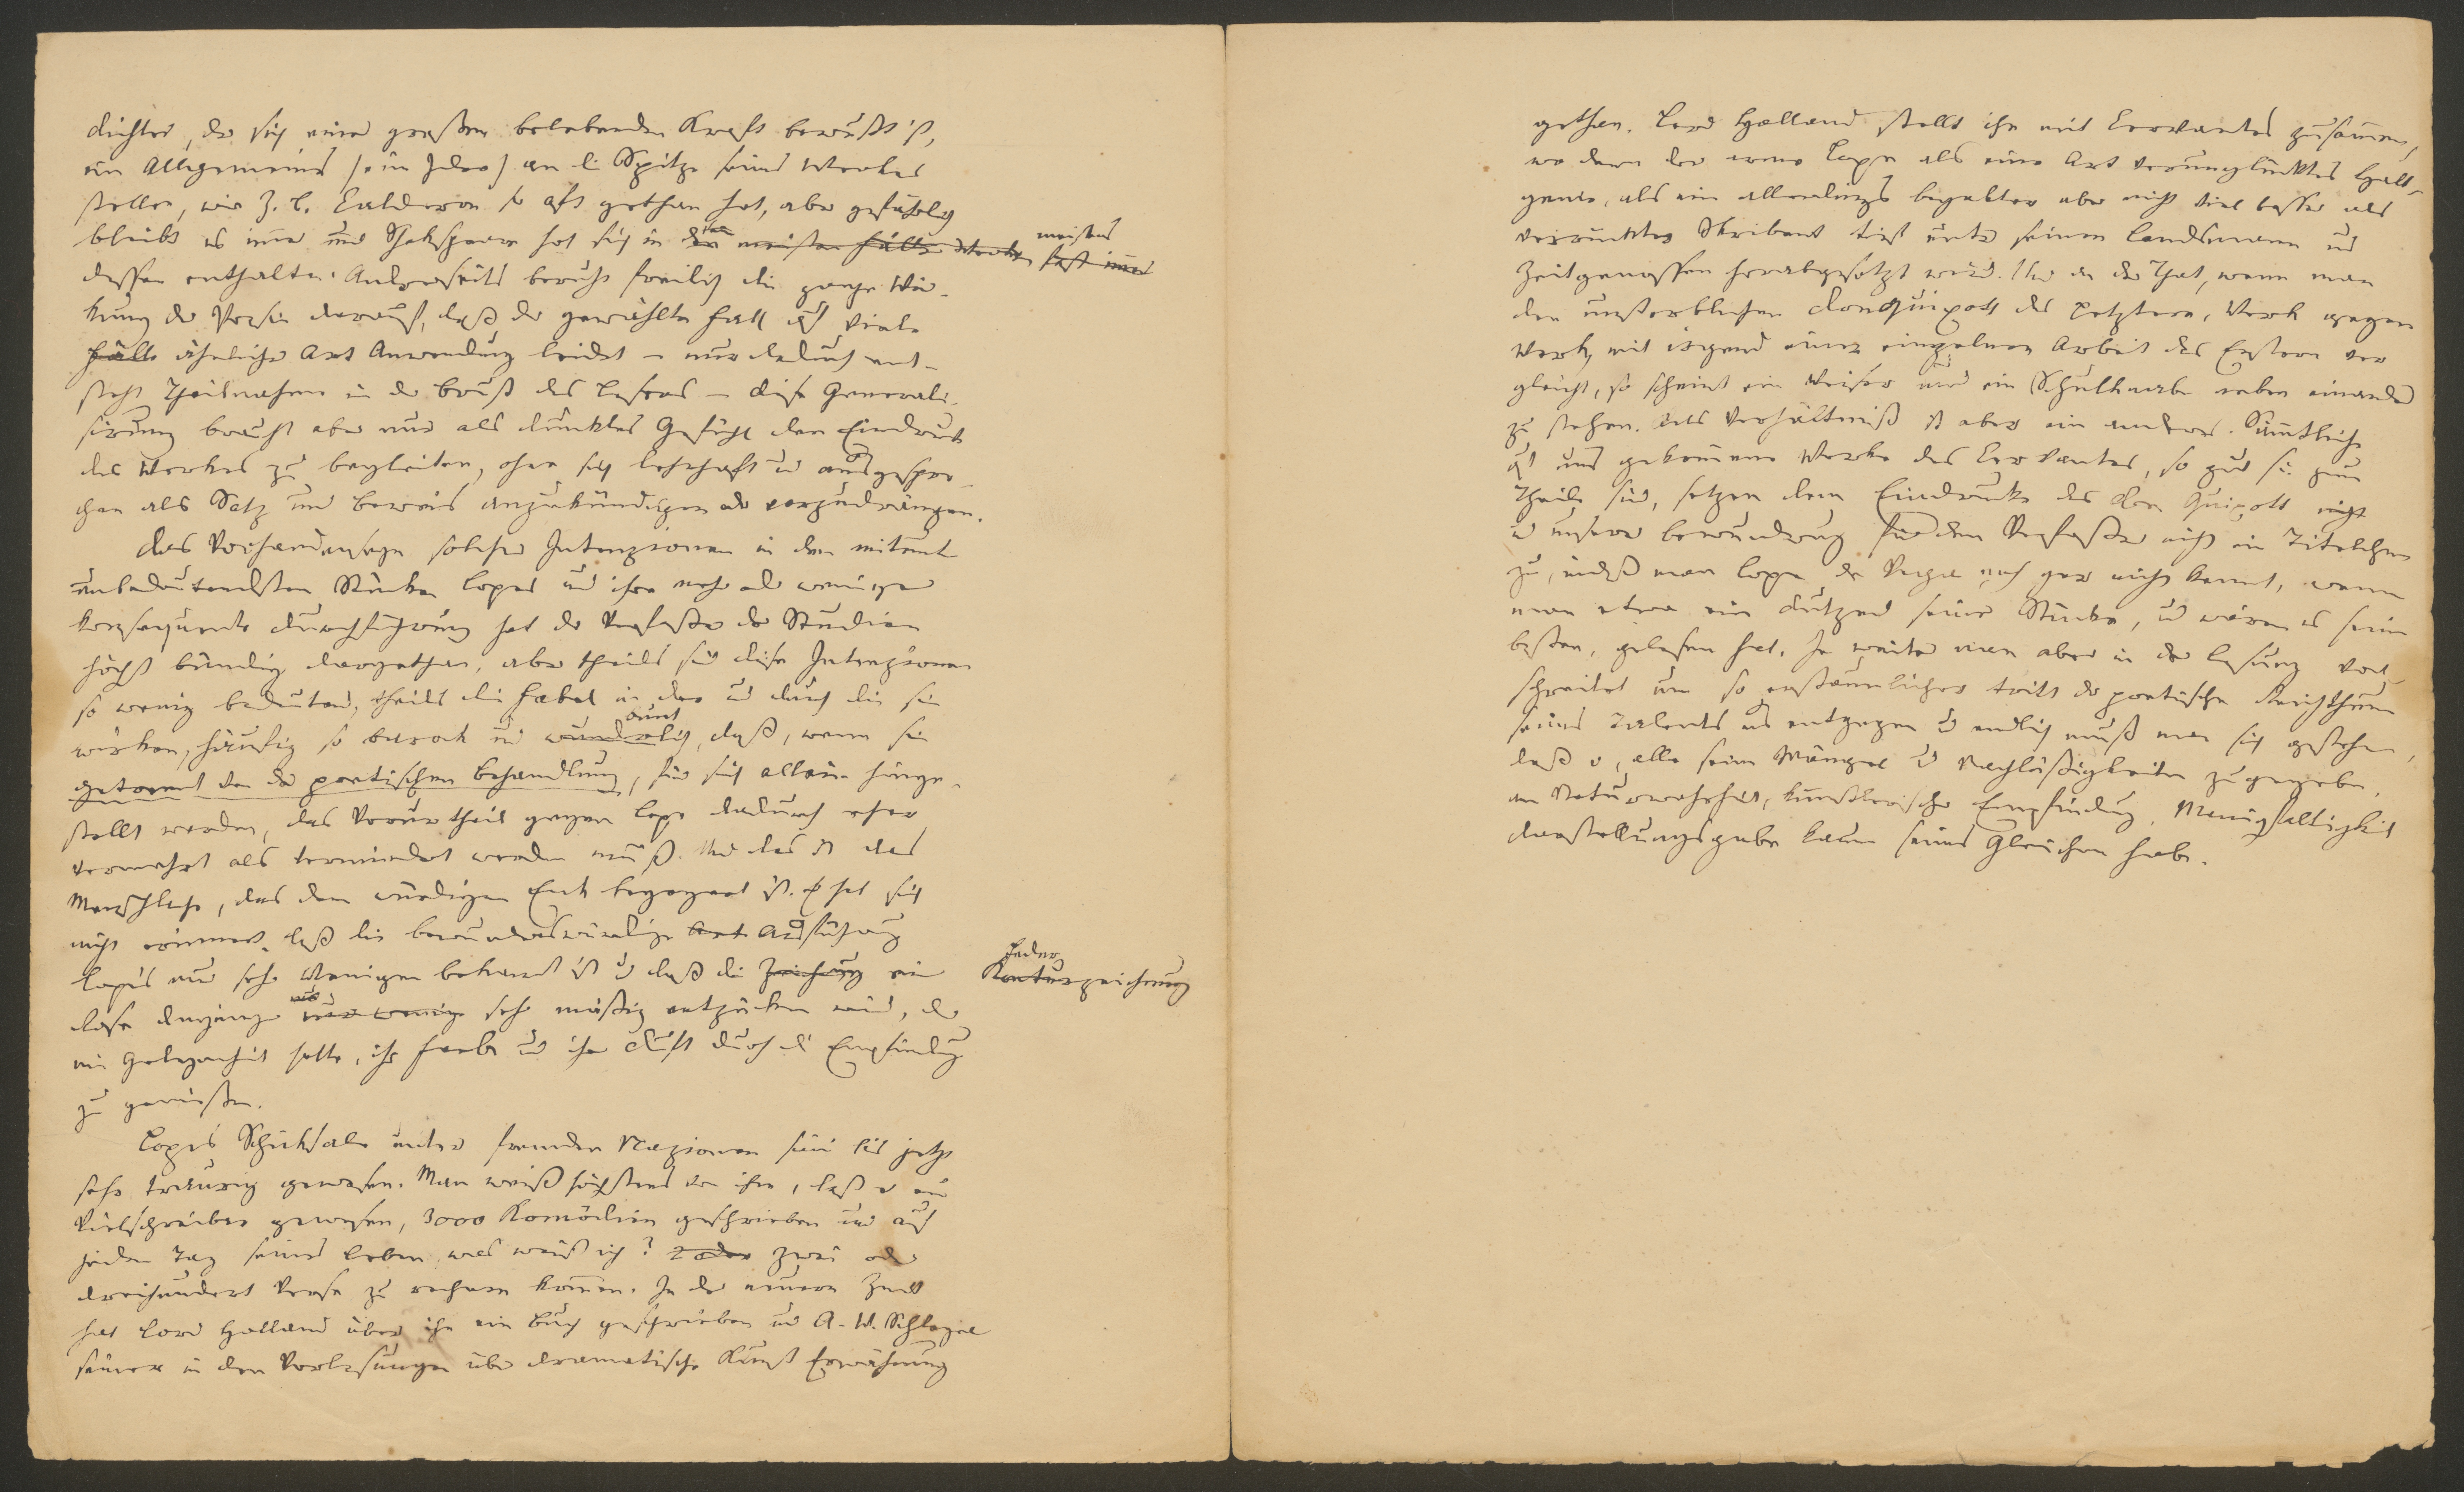 Dichter, der sich einer großen belebenden Kraft bewußt ist,
ein Allgemeines (eine Idee) an die Spitze seines Werkes
stellen, wie z. B. Calderon so oft gethan hat, aber gefährlich
bleibt es immer und Shakspeare hat sich in den meisten Fällen Werken fast immer meistens
dessen enthalten. Andrerseits beruht freilich die ganze Wir-
kung der Poesie darauf, daß der gewählte Fall auf viele
Fälle ähnlicher Art Anwendung leidet – nur dadurch ent-
steht Theilnahme in der Brust des Lesers – diese Generali-
sirung braucht aber nur als dunkles Gefühl den Eindruck
des Werkes zu begleiten, ohne sich lehrhaft und ausgespro-
chen als Satz und Beweis anzukündigen oder vorzudrängen.
Das Vorhandenseyn solcher Intenzionen in den mitunter
unbedeutendsten Stücken Lopes und ihre mehr oder weniger
konsequente Durchführung hat der Verfasser der Studien
höchst bündig dargethan, aber theils sind diese Intenzionen
so wenig bedeutend, theils die Fabel in der und durch die sie
wirken, häufig so barock und wunderlich, daß, wenn sie
getrennt von der poetischen Behandlung, für sich allein hinge-
stellt werden, das Vorurtheil gegen Lope dadurch eher
vermehrt als vermindert werden muß. Und das ist das
Menschliche, das dem würdigen Enk begegnet ist. Er hat sich
nicht erinnert, daß die bewundernswürdige Art Ausführung
Lope's nur sehr Wenigen bekannt ist und daß die Zeichnung einer Kontur Federzeichnung
Rose denjenigen nur wenig sehr mäßig entzücken wird, der
nie Gelegenheit hatte, ihre Farbe und ihren Duft durch die Empfindung
zu genießen.
Lope's Schicksale unter fremden Nazionen sind bis jetzt
sehr traurig gewesen. Man weiß höchstens von ihm, daß er ein
Vielschreiber gewesen, 3000 Komödien geschrieben und auf
jeden Tag seines Lebens was weiß ich? 2 oder zwei oder
dreihundert Verse zu rechnen kommen. In der neuern Zeit
hat Lord Holland über ihn ein Buch geschrieben und A. W. Schlegel
seiner in den Vorlesungen über dramatische Kunst Erwähnung
gethan. Lord Holland stellt ihn mit Cervantes zusammen,
wo denn der arme Lope als eine Art verunglücktes Halb-
genie, als ein allerdings begabter aber nicht viel besser als
verrückter Skribent tief unter seinen Landsmann und
Zeitgenossen herabgesetzt wird. Und in der That, wenn man
den unsterblichen Donquixott des Letztern, Werk gegen
Werk, mit irgend einer einzelnen Arbeit des Erstern ver
gleicht, so scheint ein Weiser und ein Schulknabe neben einander
zu stehen. Das Verhältniß ist aber ein anderes. Sämmtliche
auf uns gekommene Werke des Cervantes, so gut sie zum
Theile sind, setzen dem Eindrucke des Don Quixott nichts
und unsrer Bewunderung für den Verfasser nicht ein Titelchen
zu, indeß man Lope de Vega noch gar nicht kennt, wenn
man etwa ein Dutzend seiner Stücke, und wären es seine
besten, gelesen hat. Je weiter man aber in der Lesung vor-
schreitet um so erstaunlicher tritt der poetische Reichthum
seines Talents uns entgegen und endlich muß man sich gestehen,
daß er, alle seine Mängel und Nachläßigkeiten zugegeben,
an Naturwahrheit, künstlerischer Empfindung, Manigfaltigkeit
Darstellungsgabe kaum seines Gleichen habe.